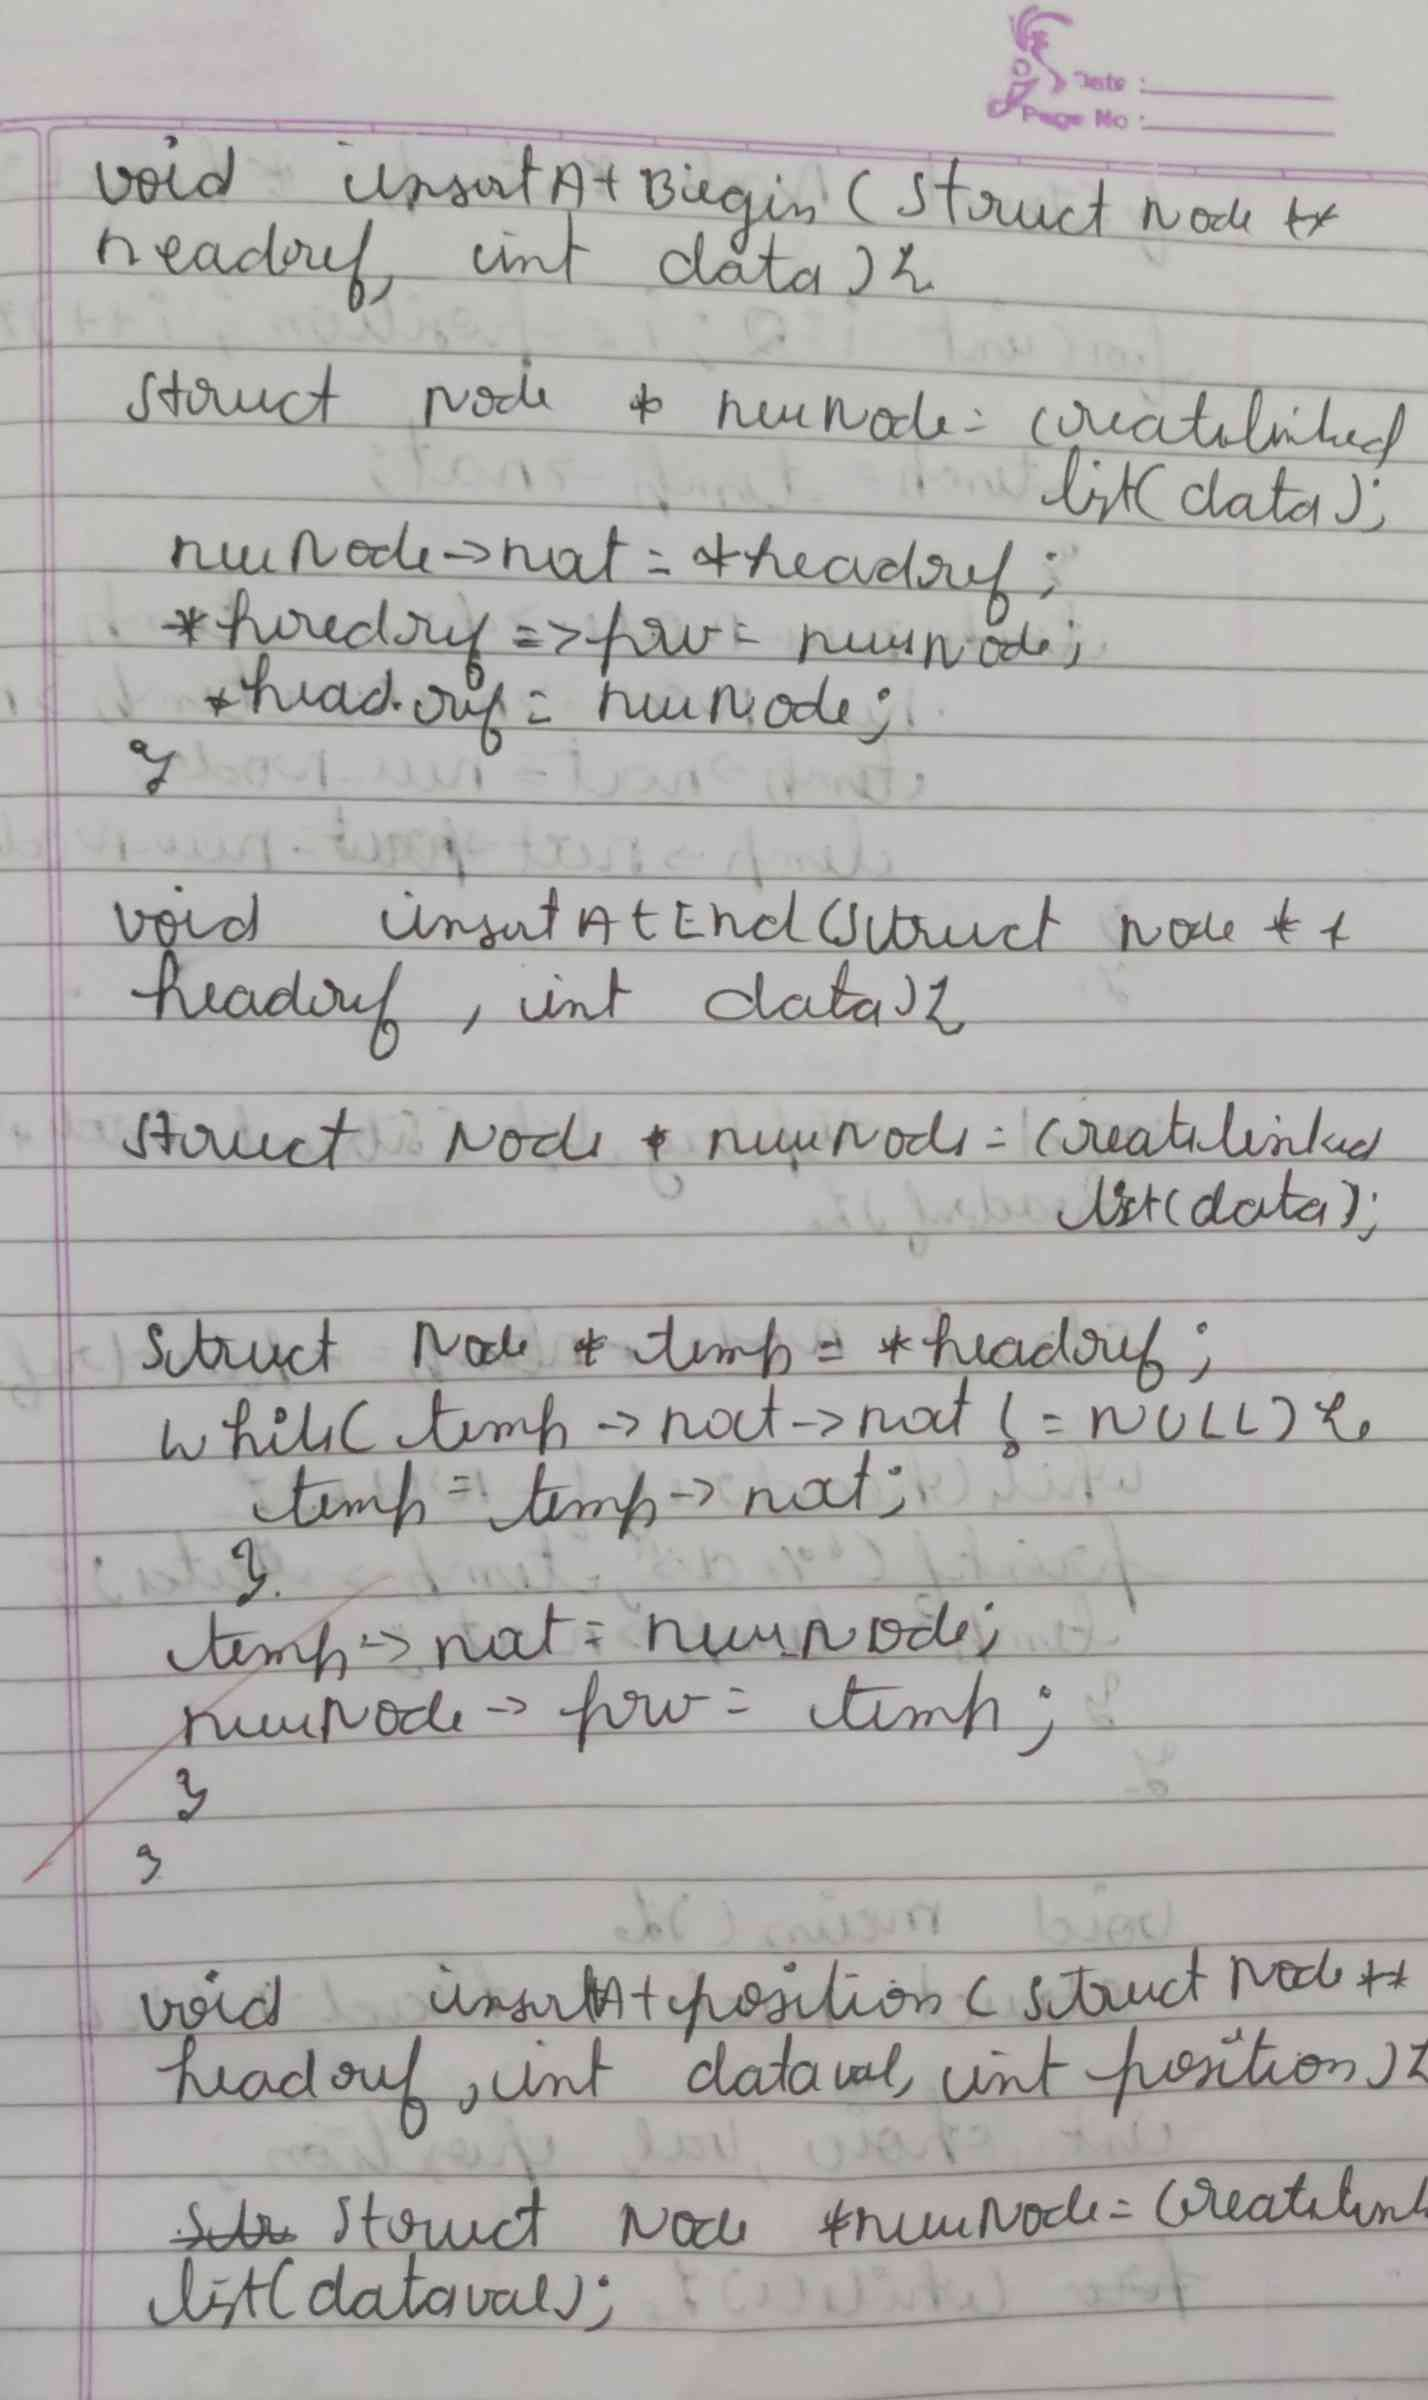 Date :
Page No :
void insertAtBiegin (struct Node **
headref, int data) {
struct Node * newNode = createlinked
list(data);
newNode->next = *headref;
*headref =>prev = newNode;
*headref = newNode;
}
void insertAtEnd(struct Node **
headref, int data) {
struct Node * newNode = createlinked
list(data);
struct Node * temp = *headref;
while( temp ->next->next != NULL) {
temp = temp-> next;
}
temp -> next = newNode;
newNode -> prev = temp;
}
}
void insertAtposition (struct Node **
headref, int dataval, int position) {
struct Node *newNode = createlink
list(dataval);